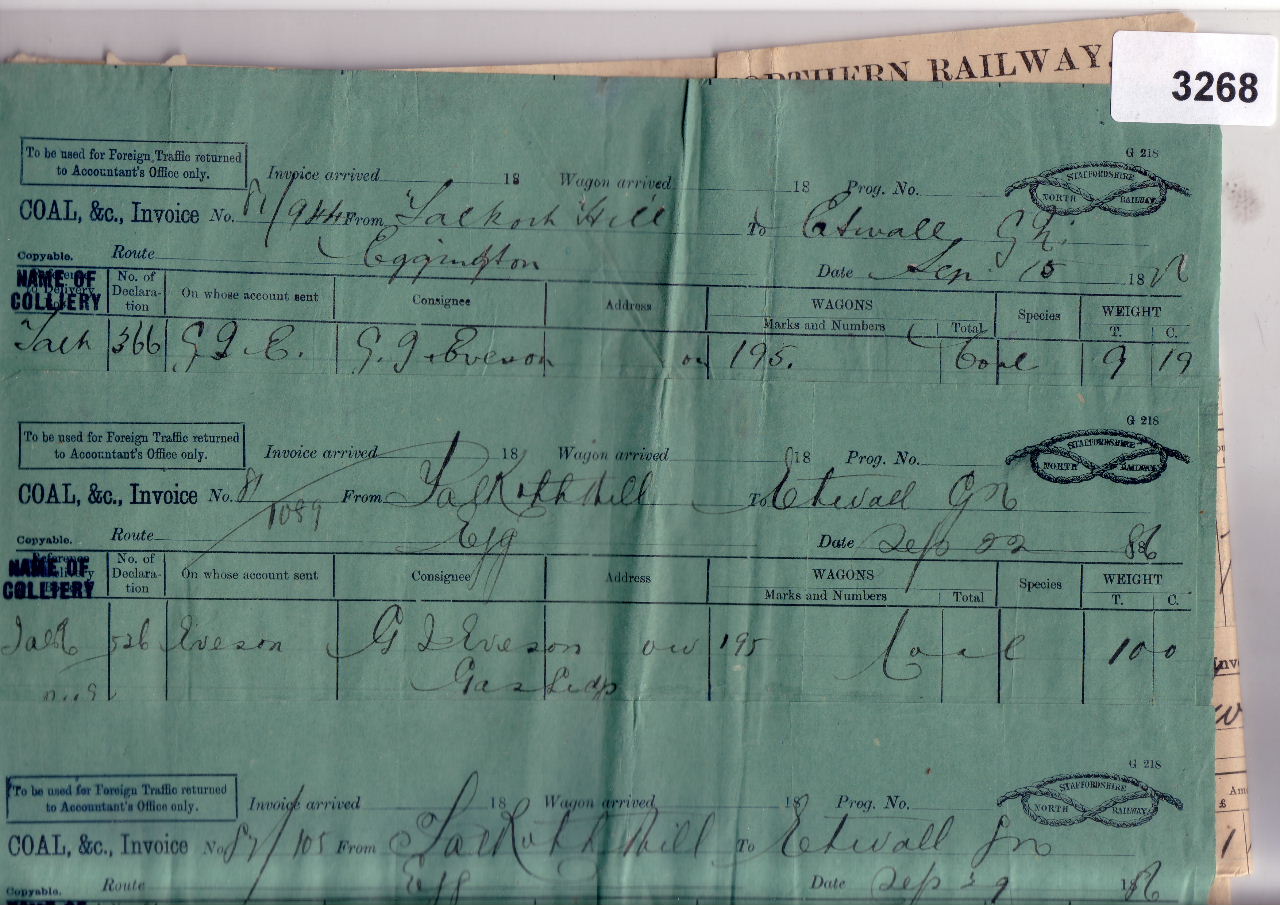 ORTHERN RAILWAY.
3268
G 218
To be used for Foreign Traffic returned
to Accountant's Office only.
Invoice arrived 18 Wagon arrived 18 Prog. No.
STAFFORDSHIRE
NORTH RAILWAY.
COAL, &c., Invoice No. 81/944 From Talkoth Hill To Etwall G N.
Copyable. Route Eggington Date Sep. 15 18
NAME OF
COLLIERY
No. of
Declara-
tion
On whose account sent Consignee Address WAGONS Species WEIGHT
Marks and Numbers Total T. C.
Talk 366 G J E. G. J. Eveson on 195. Coal 9 19
G 218
To be used for Foreign Traffic returned
to Accountant's Office only.
Invoice arrived 18 Wagon arrived 18 Prog. No.
STAFFORDSHIRE
NORTH RAILWAY.
COAL, &c., Invoice No. 81/1089 From Talkoth Hill To Etwall GN
Copyable. Route Egg Date Sep 22 86
NAME OF
COLLIERY
No. of
Declara-
tion
On whose account sent Consignee Address WAGONS Species WEIGHT
Marks and Numbers Total T. C.
Talk 526 Eveson G J Eveson ow 195 Coal 10 0
G 218
To be used for Foreign Traffic returned
to Accountant's Office only.
Invoice arrived 18 Wagon arrived 18 Prog. No.
STAFFORDSHIRE
NORTH RAILWAY.
COAL, &c., Invoice No. 105 From Talkoth Hill To Etwall GN
Copyable. Route Egg Date Sep 29 186